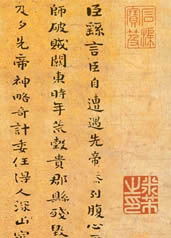 石渠寶笈
臣繇言臣自遭遇先帝忝列腹心
師破賊關東時年荒穀貴郡縣殘毀
及夕先帝神略奇計委任得人深山窮